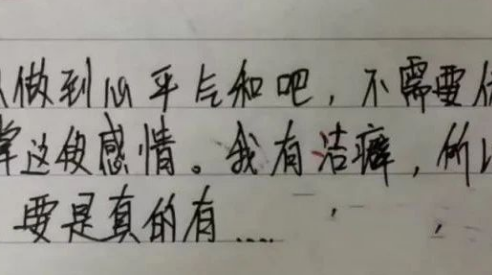 做到心平气和吧，不需要
这段感情。我有洁癖，所以
要是真的有....